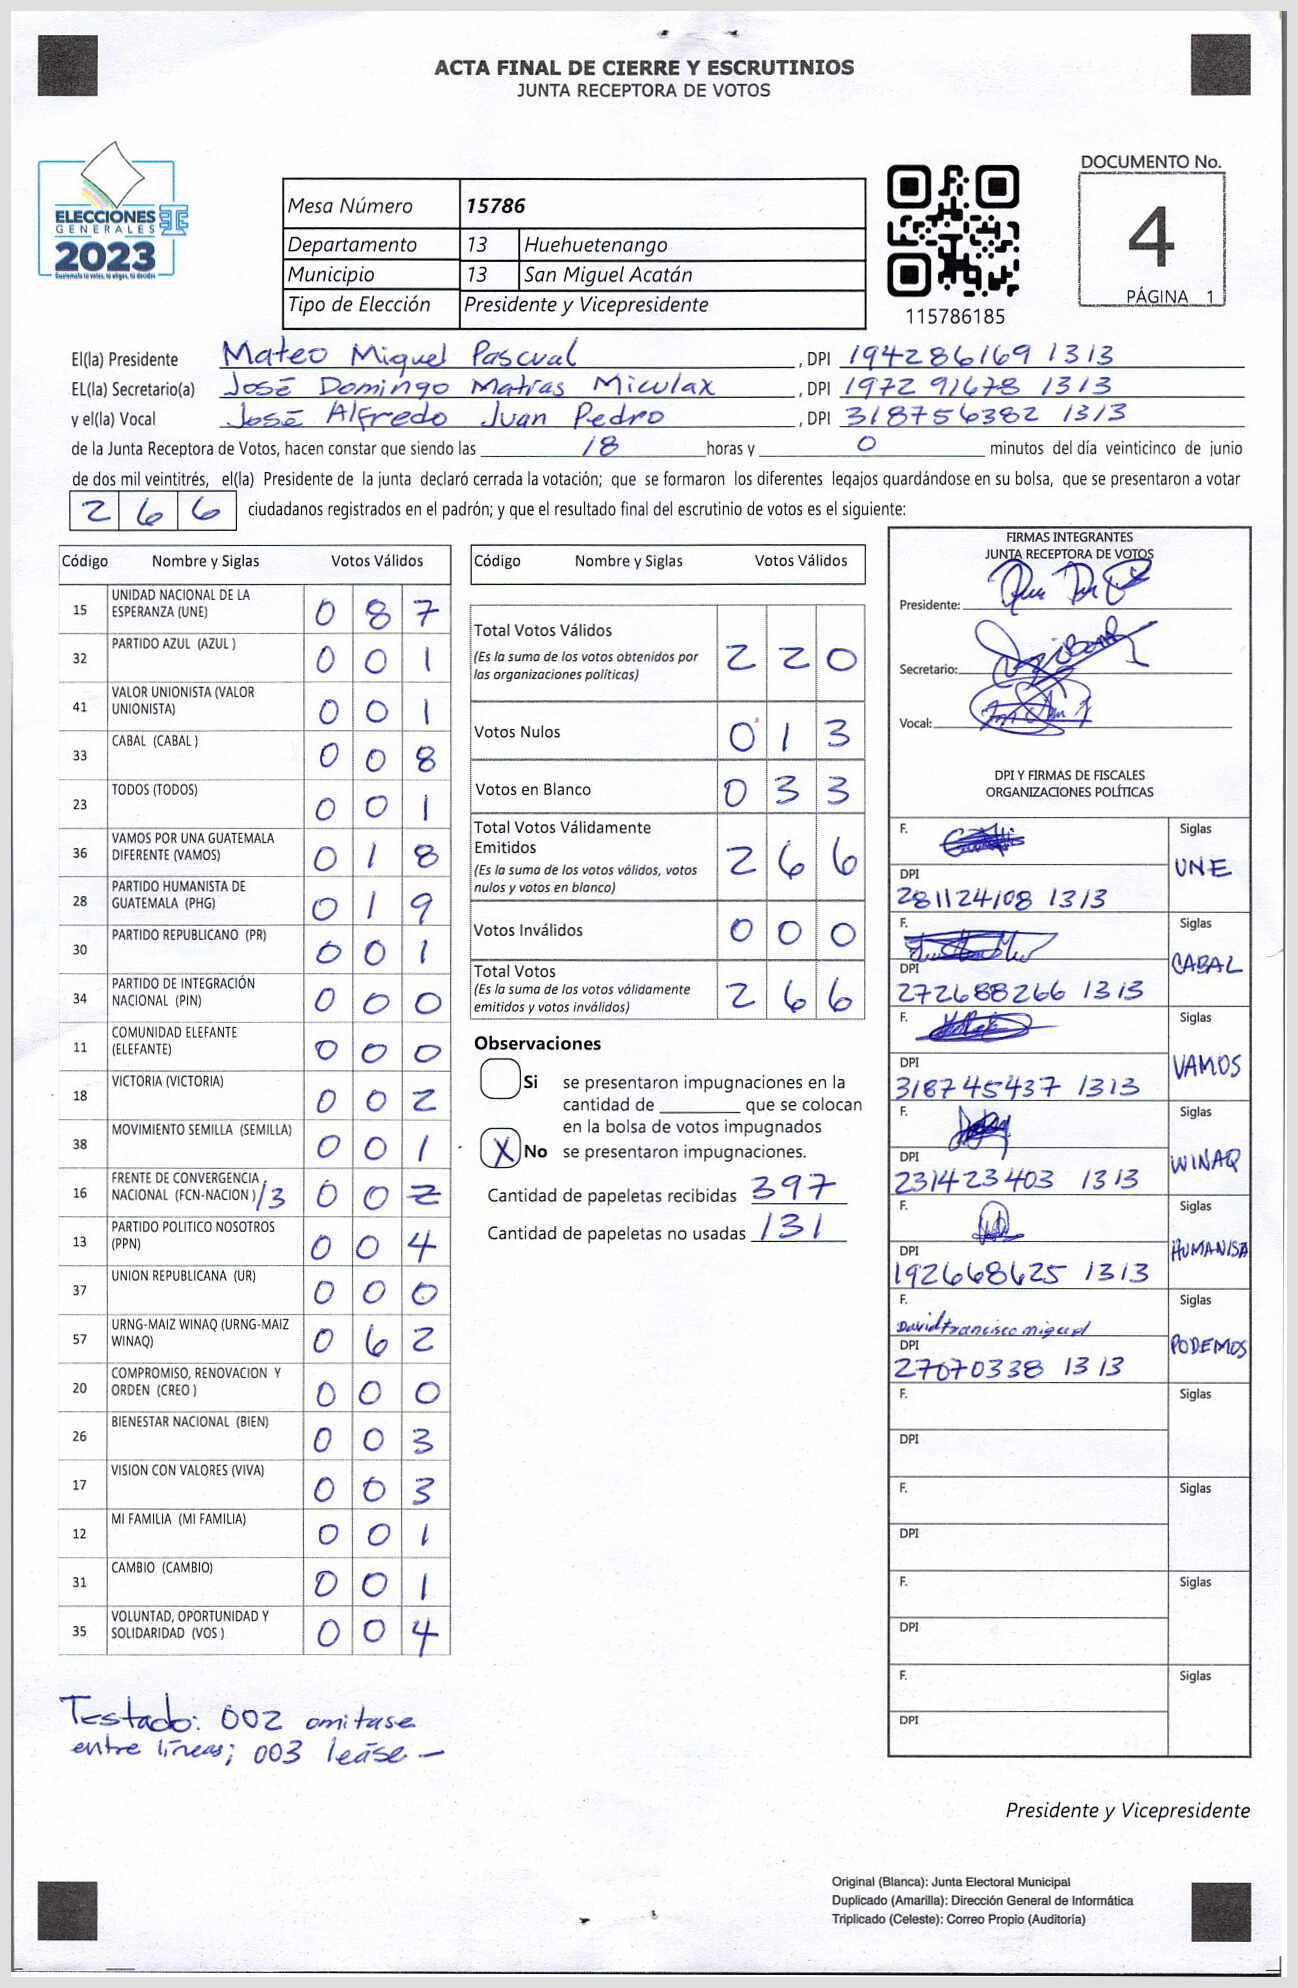 ACTA FINAL DE CIERRE Y ESCRUTINIOS
JUNTA RECEPTORA DE VOTOS
ELECCIONES
GENERALES
2023
Mesa Número 15786
Departamento 13 Huehuetenango
Municipio 13 San Miguel Acatán
Tipo de Elección Presidente y Vicepresidente
115786185
DOCUMENTO No.
4
PÁGINA 1
El(la) Presidente Mateo Miguel Pascual , DPI 194286169 1313
EL(la) Secretario(a) José Domingo Matías Miculax , DPI 1972 91678 1313
y el(la) Vocal José Alfredo Juan Pedro , DPI 318756382 1313
de la Junta Receptora de Votos, hacen constar que siendo las 18 horas y 0 minutos del día veinticinco de junio
de dos mil veintitrés, el(la) Presidente de la junta declaró cerrada la votación; que se formaron los diferentes legajos guardándose en su bolsa, que se presentaron a votar
2 6 6 ciudadanos registrados en el padrón; y que el resultado final del escrutinio de votos es el siguiente:
Código Nombre y Siglas Votos Válidos
15 UNIDAD NACIONAL DE LA ESPERANZA (UNE) 0 8 7
32 PARTIDO AZUL (AZUL ) 0 0 1
41 VALOR UNIONISTA (VALOR UNIONISTA) 0 0 1
33 CABAL (CABAL ) 0 0 8
23 TODOS (TODOS) 0 0 1
36 VAMOS POR UNA GUATEMALA DIFERENTE (VAMOS) 0 1 8
28 PARTIDO HUMANISTA DE GUATEMALA (PHG) 0 1 9
30 PARTIDO REPUBLICANO (PR) 0 0 1
34 PARTIDO DE INTEGRACIÓN NACIONAL (PIN) 0 0 0
11 COMUNIDAD ELEFANTE (ELEFANTE) 0 0 0
18 VICTORIA (VICTORIA) 0 0 2
38 MOVIMIENTO SEMILLA (SEMILLA) 0 0 1
16 FRENTE DE CONVERGENCIA NACIONAL (FCN-NACION) /3 0 0 2
13 PARTIDO POLITICO NOSOTROS (PPN) 0 0 4
37 UNION REPUBLICANA (UR) 0 0 0
57 URNG-MAIZ WINAQ (URNG-MAIZ WINAQ) 0 6 2
20 COMPROMISO, RENOVACION Y ORDEN (CREO ) 0 0 0
26 BIENESTAR NACIONAL (BIEN) 0 0 3
17 VISION CON VALORES (VIVA) 0 0 3
12 MI FAMILIA (MI FAMILIA) 0 0 1
31 CAMBIO (CAMBIO) 0 0 1
35 VOLUNTAD, OPORTUNIDAD Y SOLIDARIDAD (VOS ) 0 0 4
Testado: 002 omitase
entre líneas; 003 leáse —
Código Nombre y Siglas Votos Válidos
Total Votos Válidos 2 2 0
(Es la suma de los votos obtenidos por
las organizaciones políticas)
Votos Nulos 0 1 3
Votos en Blanco 0 3 3
Total Votos Válidamente
Emitidos 2 6 6
(Es la suma de los votos válidos, votos
nulos y votos en blanco)
Votos Inválidos 0 0 0
Total Votos 2 6 6
(Es la suma de los votos válidamente
emitidos y votos inválidos)
Observaciones
Si se presentaron impugnaciones en la
cantidad de ________ que se colocan
en la bolsa de votos impugnados
X No se presentaron impugnaciones.
Cantidad de papeletas recibidas 397
Cantidad de papeletas no usadas 131
FIRMAS INTEGRANTES
JUNTA RECEPTORA DE VOTOS
Presidente:
Secretario:
Vocal:
DPI Y FIRMAS DE FISCALES
ORGANIZACIONES POLÍTICAS
F. Siglas
UNE
DPI
281124108 1313
F. Siglas
CABAL
DPI
272688266 1313
F. Siglas
VAMOS
DPI
318745437 1313
F. Siglas
WINAQ
DPI
231423403 1313
F. Siglas
HUMANISA
DPI
192668625 1313
F. Siglas
David francisco miguel
PODEMOS
DPI
27070338 1313
F. Siglas
DPI
F. Siglas
DPI
F. Siglas
DPI
F. Siglas
DPI
Presidente y Vicepresidente
Original (Blanca): Junta Electoral Municipal
Duplicado (Amarilla): Dirección General de Informática
Triplicado (Celeste): Correo Propio (Auditoría)